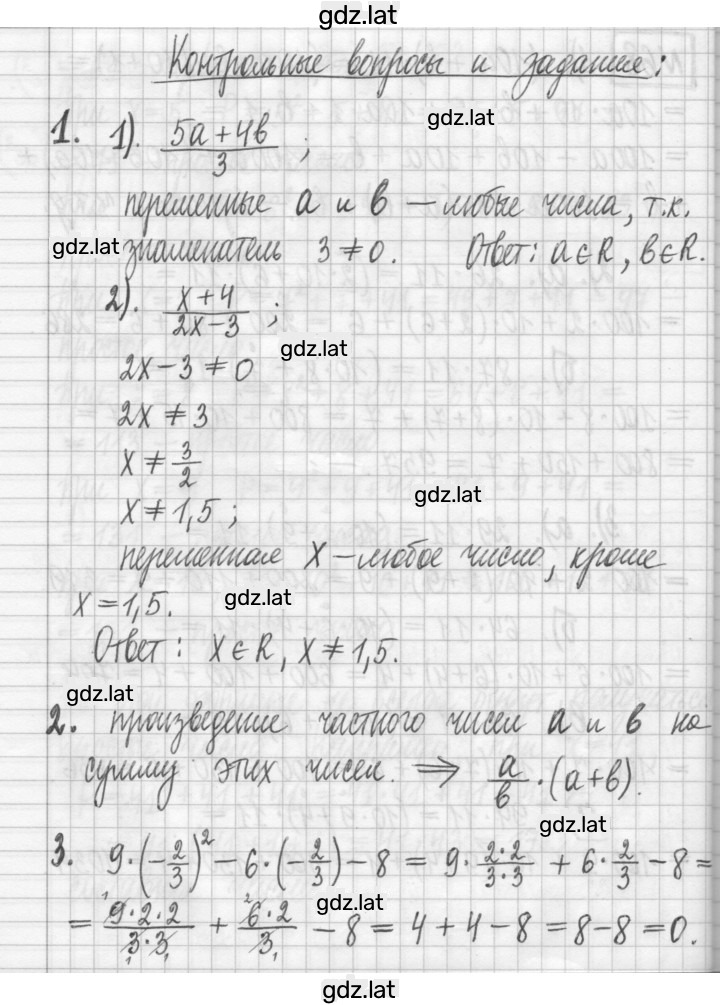 gdz.lat
Контрольные вопросы и задания:
gdz.lat
1. 1). (5a+4b)/3 ;
переменные a и b — любые числа, т.к.
gdz.lat знаменатель 3 ≠ 0. Ответ: a∈R, b∈R.
2). (x+4)/(2x−3) ;
gdz.lat
2x−3 ≠ 0
2x ≠ 3
x ≠ 3/2
gdz.lat
x ≠ 1,5 ;
переменная x — любое число, кроме
x = 1,5. gdz.lat
Ответ: x∈R, x ≠ 1,5.
gdz.lat
2. произведение частного чисел a и b на
сумму этих чисел. ⇒ a/b · (a+b).
gdz.lat
3. 9·(−2/3)² − 6·(−2/3) − 8 = 9· (2·2)/(3·3) + 6· 2/3 − 8 =
gdz.lat
= (9·2·2)/(3·3) + (6·2)/3 − 8 = 4+4−8 = 8−8 = 0.
gdz.lat